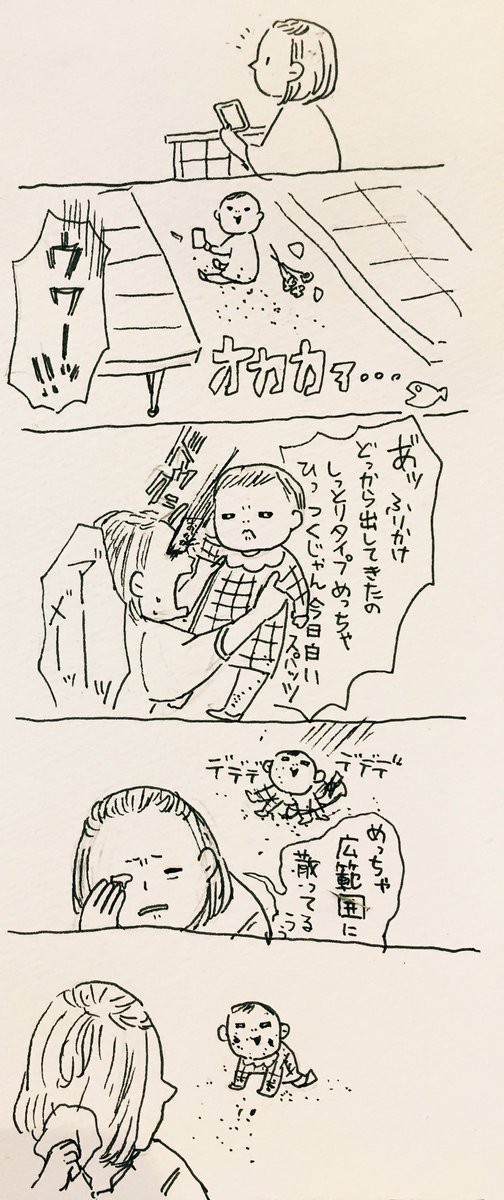 ウワー!!
オカカィ…
あ゛ッ ふりかけ
どっから出してきたの
しっとりタイプめっちゃ
ひっつくじゃん今日白い
スパッツ
メーーッ
デデデ
デデデ
めっちゃ
広範囲に
散ってる
うう